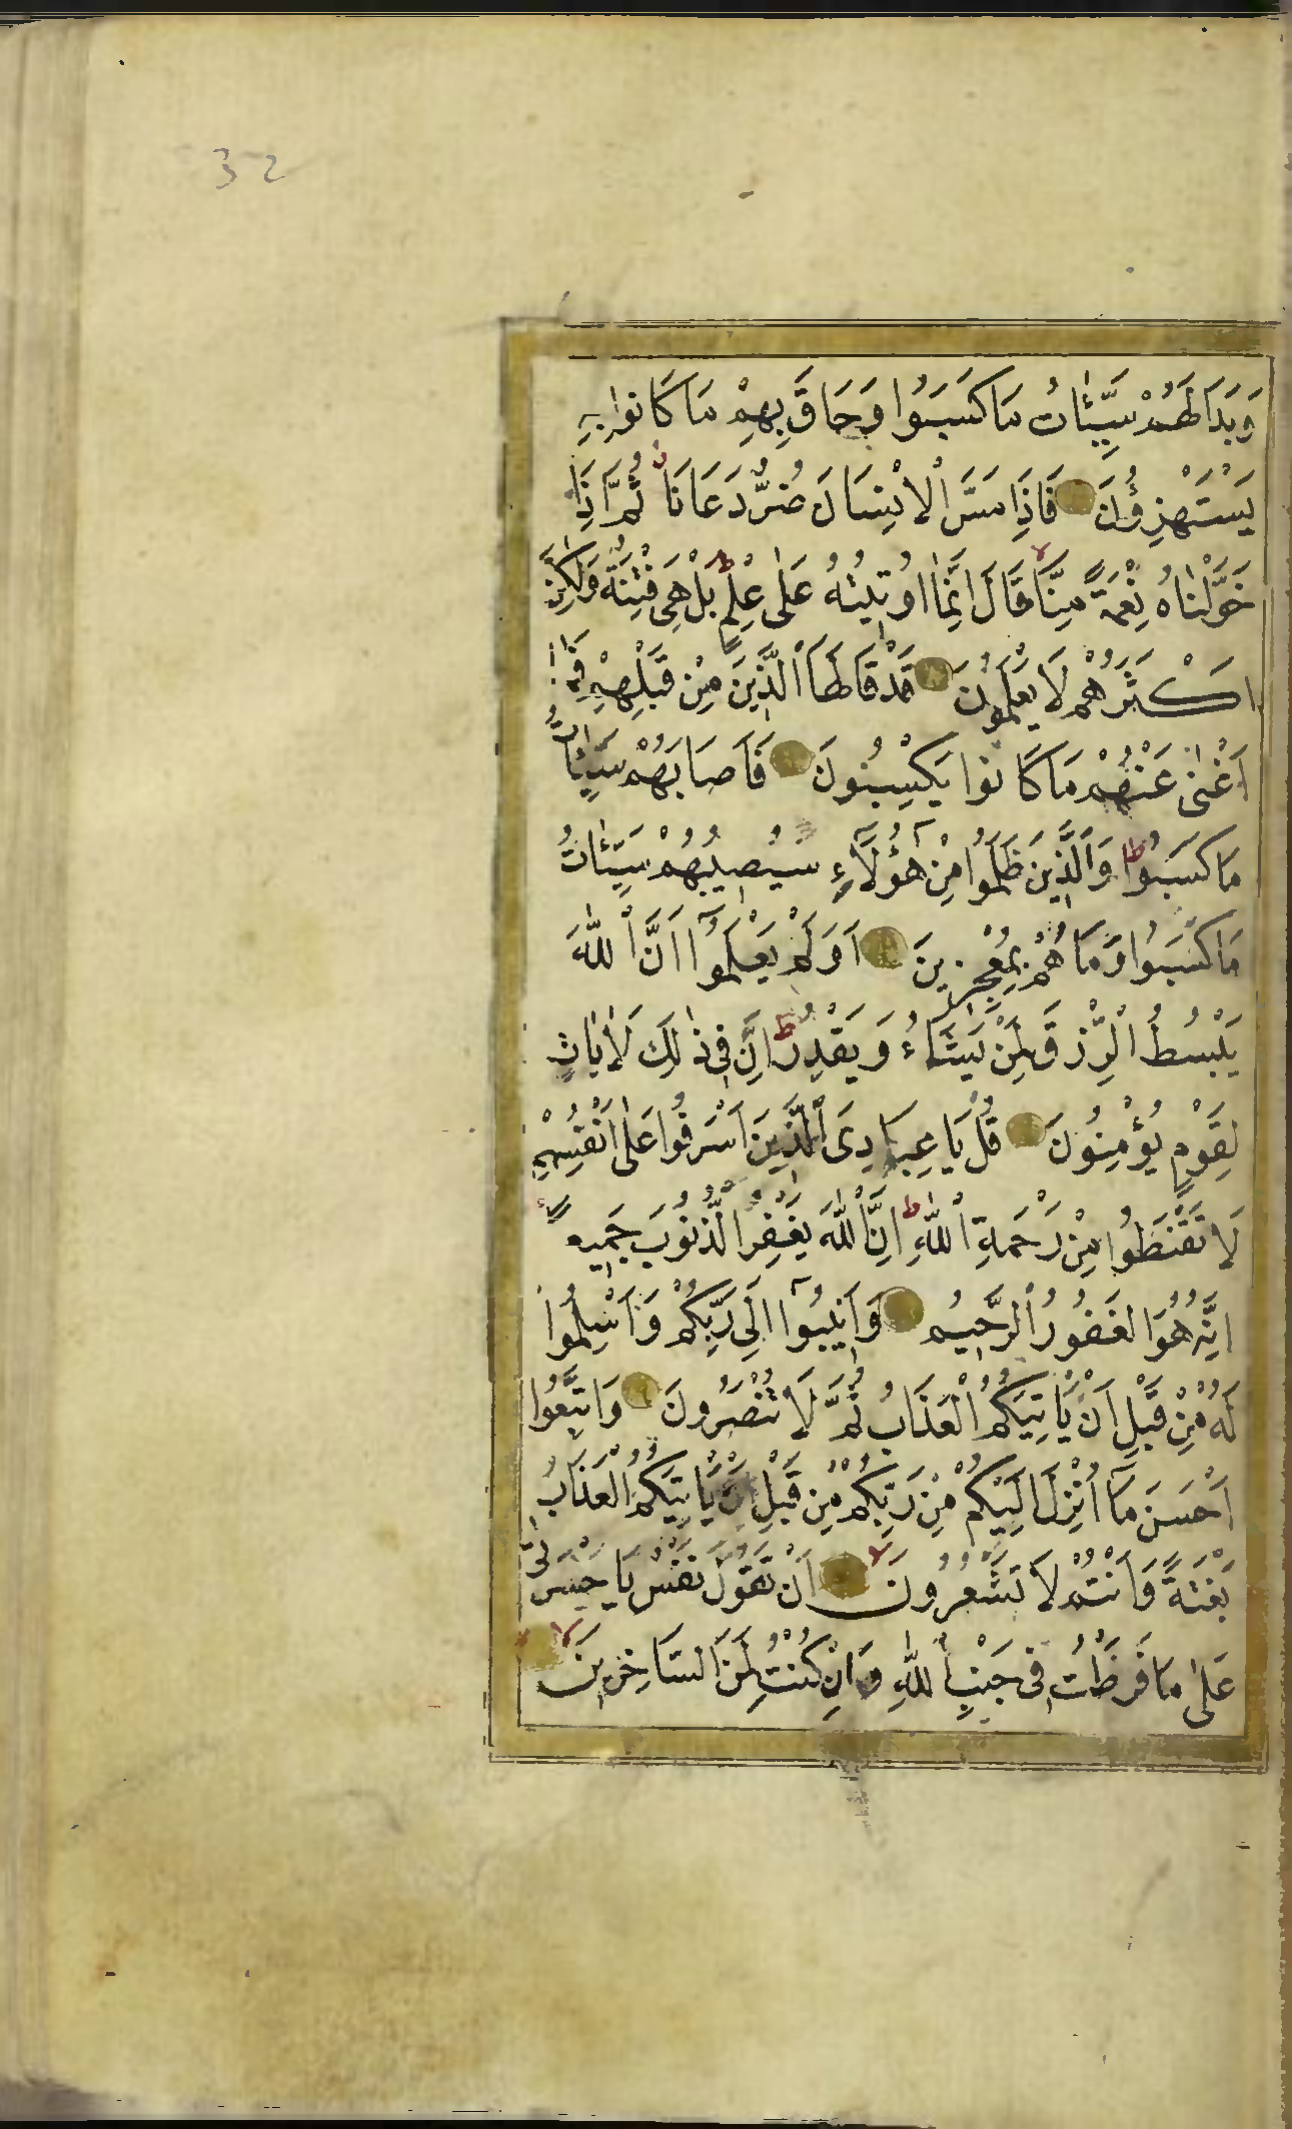 32
وَبَدَا لَهُمْ سَيِّئَاتُ مَا كَسَبُوا وَحَاقَ بِهِمْ مَا كَانُوا بِهِ
يَسْتَهْزِؤُنَ فَاِذَا مَسَّ الْاِنْسَانَ ضُرٌّ دَعَانَا ثُمَّ اِذَا
خَوَّلْنَاهُ نِعْمَةً مِنَّا قَالَ اِنَّمَا اُوتِيتُهُ عَلٰى عِلْمٍ بَلْ هِيَ فِتْنَةٌ وَلٰكِنَّ
اَكْثَرَهُمْ لَا يَعْلَمُونَ قَدْ قَالَهَا الَّذِينَ مِنْ قَبْلِهِمْ فَمَا
اَغْنٰى عَنْهُمْ مَا كَانُوا يَكْسِبُونَ فَاَصَابَهُمْ سَيِّئَاتُ
مَا كَسَبُوا وَالَّذِينَ ظَلَمُوا مِنْ هٰٓؤُلَآءِ سَيُصِيبُهُمْ سَيِّئَاتُ
مَا كَسَبُوا وَمَا هُمْ بِمُعْجِزِينَ اَوَلَمْ يَعْلَمُوٓا اَنَّ اللّٰهَ
يَبْسُطُ الرِّزْقَ لِمَنْ يَشَاءُ وَيَقْدِرُ اِنَّ فِي ذٰلِكَ لَاٰيَاتٍ
لِقَوْمٍ يُؤْمِنُونَ قُلْ يَا عِبَادِيَ الَّذِينَ اَسْرَفُوا عَلٰى اَنْفُسِهِمْ
لَا تَقْنَطُوا مِنْ رَحْمَةِ اللّٰهِ اِنَّ اللّٰهَ يَغْفِرُ الذُّنُوبَ جَمِيعًا
اِنَّهُ هُوَ الْغَفُورُ الرَّحِيمُ وَاَنِيبُوٓا اِلٰى رَبِّكُمْ وَاَسْلِمُوا
لَهُ مِنْ قَبْلِ اَنْ يَاْتِيَكُمُ الْعَذَابُ ثُمَّ لَا تُنْصَرُونَ وَاتَّبِعُوا
اَحْسَنَ مَآ اُنْزِلَ اِلَيْكُمْ مِنْ رَبِّكُمْ مِنْ قَبْلِ اَنْ يَاْتِيَكُمُ الْعَذَابُ
بَغْتَةً وَاَنْتُمْ لَا تَشْعُرُونَ اَنْ تَقُولَ نَفْسٌ يَا حَسْرَتٰى
عَلٰى مَا فَرَّطْتُ فِي جَنْبِ اللّٰهِ وَاِنْ كُنْتُ لَمِنَ السَّاخِرِينَ